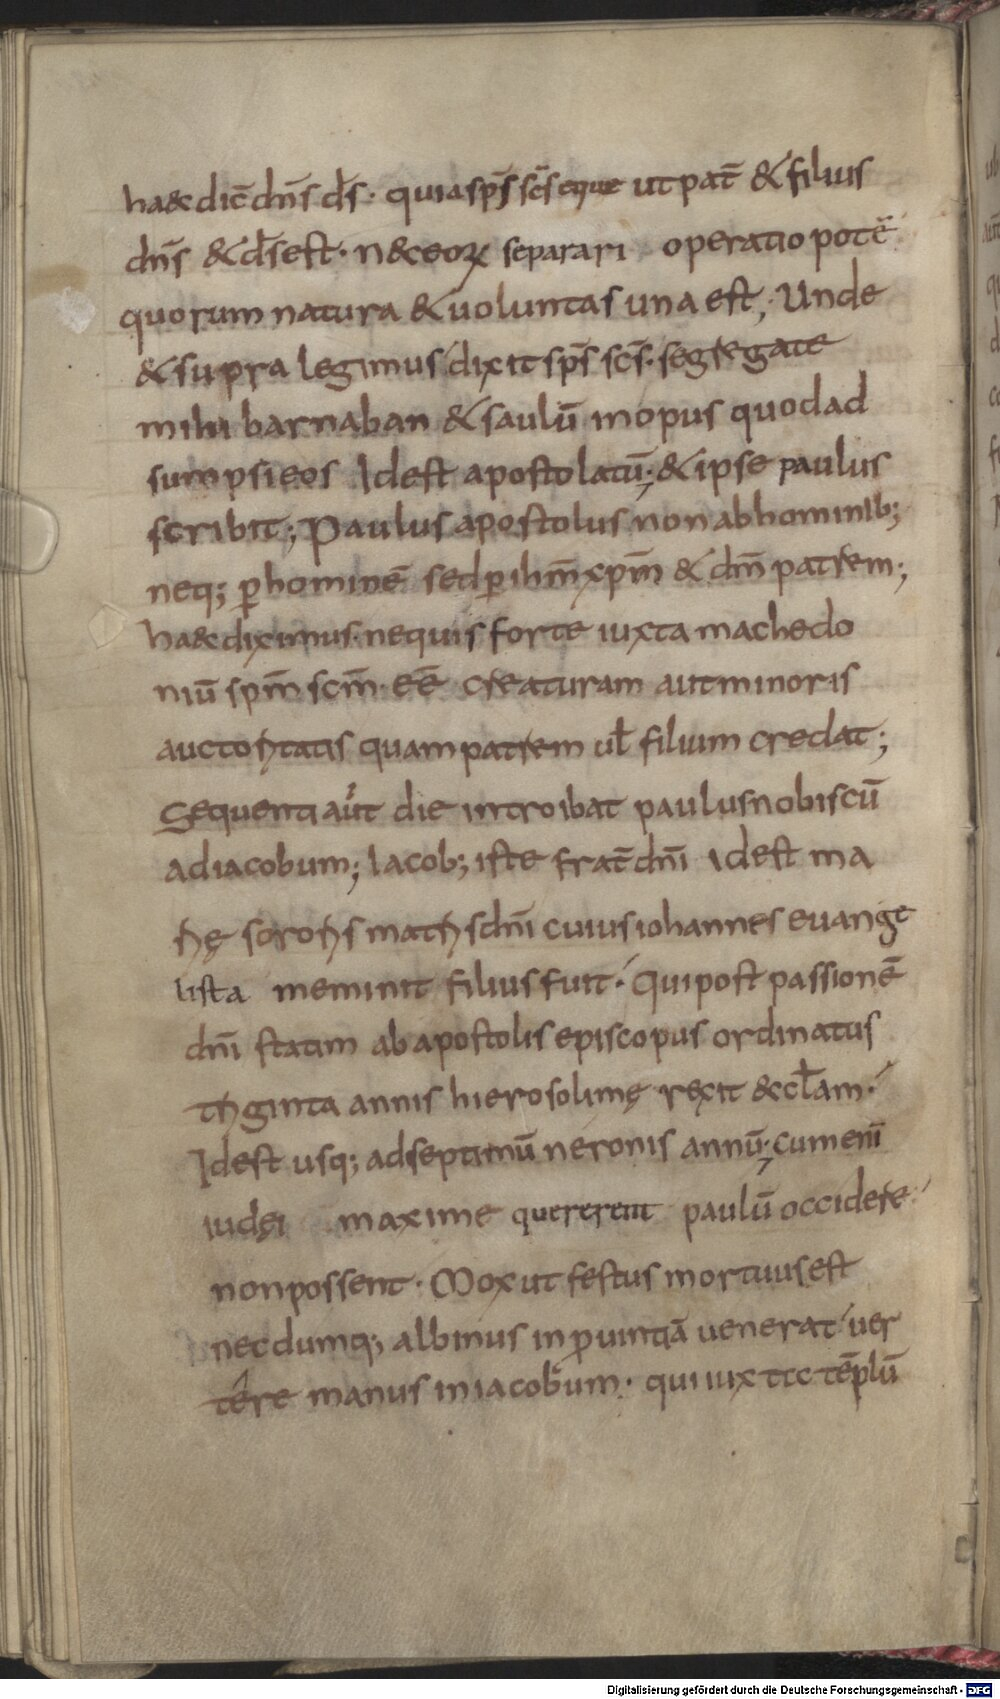 ha&c dic̄ dn̄s ds̄· quia sp̄s sc̄s eque ut pat̄ & filius
dn̄s & ds̄ est· n&c eoꝝ separari operatio potē
quorum natura & uoluntas una est; Unde
& supra legimus dixit sp̄s sc̄s· segregate
mihi barnaban & saulū in opus quod ad
sumpsi eos Id est apostolatū; & ipse paulus
scribit; Paulus apostolus non ab hominib;
neq; ꝑ hominē sed ꝑ ihm̄ xpm̄ & dm̄ patrem;
ha&c diximus· nequis forte iuxta machedo
niū spm̄ scm̄· eē creaturam aut minoris
auctoritatis quam patrem ul̄ filium credat;
Sequenti aut die introibat paulus nobiscū
ad iacobum; Iacob; iste frat̄ dn̄i Id est ma
rię sororis matris dn̄i cuius iohannes euange
lista meminit filius fuit· Qui post passionē
dn̄i statim ab apostolis episcopus ordinatus
triginta annis hierosolimę rexit &cl̄am·
Id est usq; ad septimū neronis annū; cum enī
iudęi maxime quererent paulū occidere
non possent· Mox ut festus mortuus est
necdumq; albinus in ꝓuintiā uenerat uer
tere manus in iacobum· qui iuxta tēplū
Digitalisierung gefördert durch die Deutsche Forschungsgemeinschaft - DFG